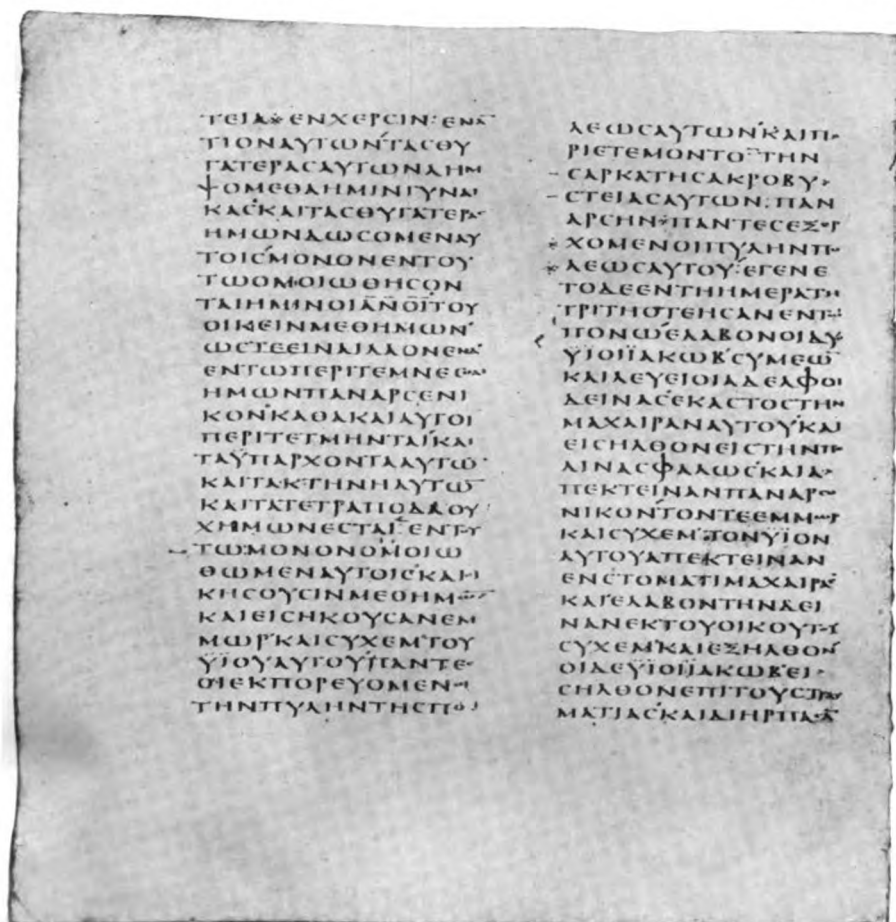 ΤΕΙΑ※ΕΝΧΕΡCΙΝ:ΕΝΑ̅
ΤΙΟΝΑΥΤΩΝ'ΤΑCΘΥ
ΓΑΤΕΡΑCΑΥΤΩΝΛΗΜ
ΨΟΜΕΘΑΗΜΙΝΓΥΝΑΙ
ΚΑC'ΚΑΙΤΑCΘΥΓΑΤΕΡΑC
ΗΜΩΝΔΩCΟΜΕΝΑΥ
ΤΟΙC'ΜΟΝΟΝΕΝΤΟΥ
ΤΩΟΜΟΙΩΘΗCΟΝ
ΤΑΙΗΜΙΝΟΙΑ̅Ν̅Ο̅Ι̅ΤΟΥ
ΟΙΚΕΙΝΜΕΘΗΜΩΝ'
ΩCΤΕΕΙΝΑΙΛΑΟΝΕΝΑ
ΕΝΤΩΠΕΡΙΤΕΜΝΕCΘΑΙ
ΗΜΩΝΠΑΝΑΡCΕΝΙ
ΚΟΝ'ΚΑΘΑΚΑΙΑΥΤΟΙ
ΠΕΡΙΤΕΤΜΗΝΤΑΙ'ΚΑΙ
ΤΑΫΠΑΡΧΟΝΤΑΑΥΤΩ̅
ΚΑΙΤΑΚΤΗΝΗΑΥΤΩ̅
ΚΑΙΤΑΤΕΤΡΑΠΟΔΑΟΥ
ΧΗΜΩΝΕCΤΑΙ:ΕΝΤΟΥ
ΤΩ:ΜΟΝΟΝΟΜΟΙΩ
ΘΩΜΕΝΑΥΤΟΙC'ΚΑΙΟΙ
ΚΗCΟΥCΙΝΜΕΘΗΜΩΝ
ΚΑΙΕΙCΗΚΟΥCΑΝΕΜ
ΜΩΡ'ΚΑΙCΥΧΕΜ'ΤΟΥ
ΫΙΟΥΑΥΤΟΥ'ΠΑΝΤΕC
ΟΙΕΚΠΟΡΕΥΟΜΕΝΟΙ
ΤΗΝΠΥΛΗΝΤΗCΠΟ
ΛΕΩCΑΥΤΩΝ'ΚΑΙΠΕ
ΡΙΕΤΕΜΟΝΤΟ÷ΤΗΝ
-CΑΡΚΑΤΗCΑΚΡΟΒΥ
-CΤΕΙΑCΑΥΤΩΝ:ΠΑΝ
ΑΡCΗΝ※ΠΑΝΤΕCΕΞΕΡ
※ΧΟΜΕΝΟΙΠΥΛΗΝΠΟ
※ΛΕΩCΑΥΤΟΥ:ΕΓΕΝΕ
ΤΟΔΕΕΝΤΗΗΜΕΡΑΤΗ
ΤΡΙΤΗΟΤΕΗCΑΝΕΝΤΩ
ΠΟΝΩ'ΕΛΑΒΟΝΟΙΔΥ
ΫΙΟΙΪΑΚΩΒ'CΥΜΕΩ̅
ΚΑΙΛΕΥΕΙΟΙΑΔΕΛΦΟΙ
ΔΕΙΝΑC'ΕΚΑCΤΟCΤΗΝ
ΜΑΧΑΙΡΑΝΑΥΤΟΥ'ΚΑΙ
ΕΙCΗΛΘΟΝΕΙCΤΗΝΠΟ
ΛΙΝΑCΦΑΛΩC'ΚΑΙΑ
ΠΕΚΤΕΙΝΑΝΠΑΝΑΡCΕ
ΝΙΚΟΝΤΟΝΤΕΕΜΜΩΡ
ΚΑΙCΥΧΕΜ'ΤΟΝΫΙΟΝ
ΑΥΤΟΥΑΠΕΚΤΕΙΝΑΝ
ΕΝCΤΟΜΑΤΙΜΑΧΑΙΡΑC
ΚΑΙΕΛΑΒΟΝΤΗΝΔΕΙ
ΝΑΝΕΚΤΟΥΟΙΚΟΥΤΟΥ
CΥΧΕΜ'ΚΑΙΕΞΗΛΘΟΝ
ΟΙΔΕΫΙΟΙΪΑΚΩΒΕΙ
CΗΛΘΟΝΕΠΙΤΟΥCΤΡΑΥ
ΜΑΤΙΑC'ΚΑΙΔΙΗΡΠΑCΑ̅